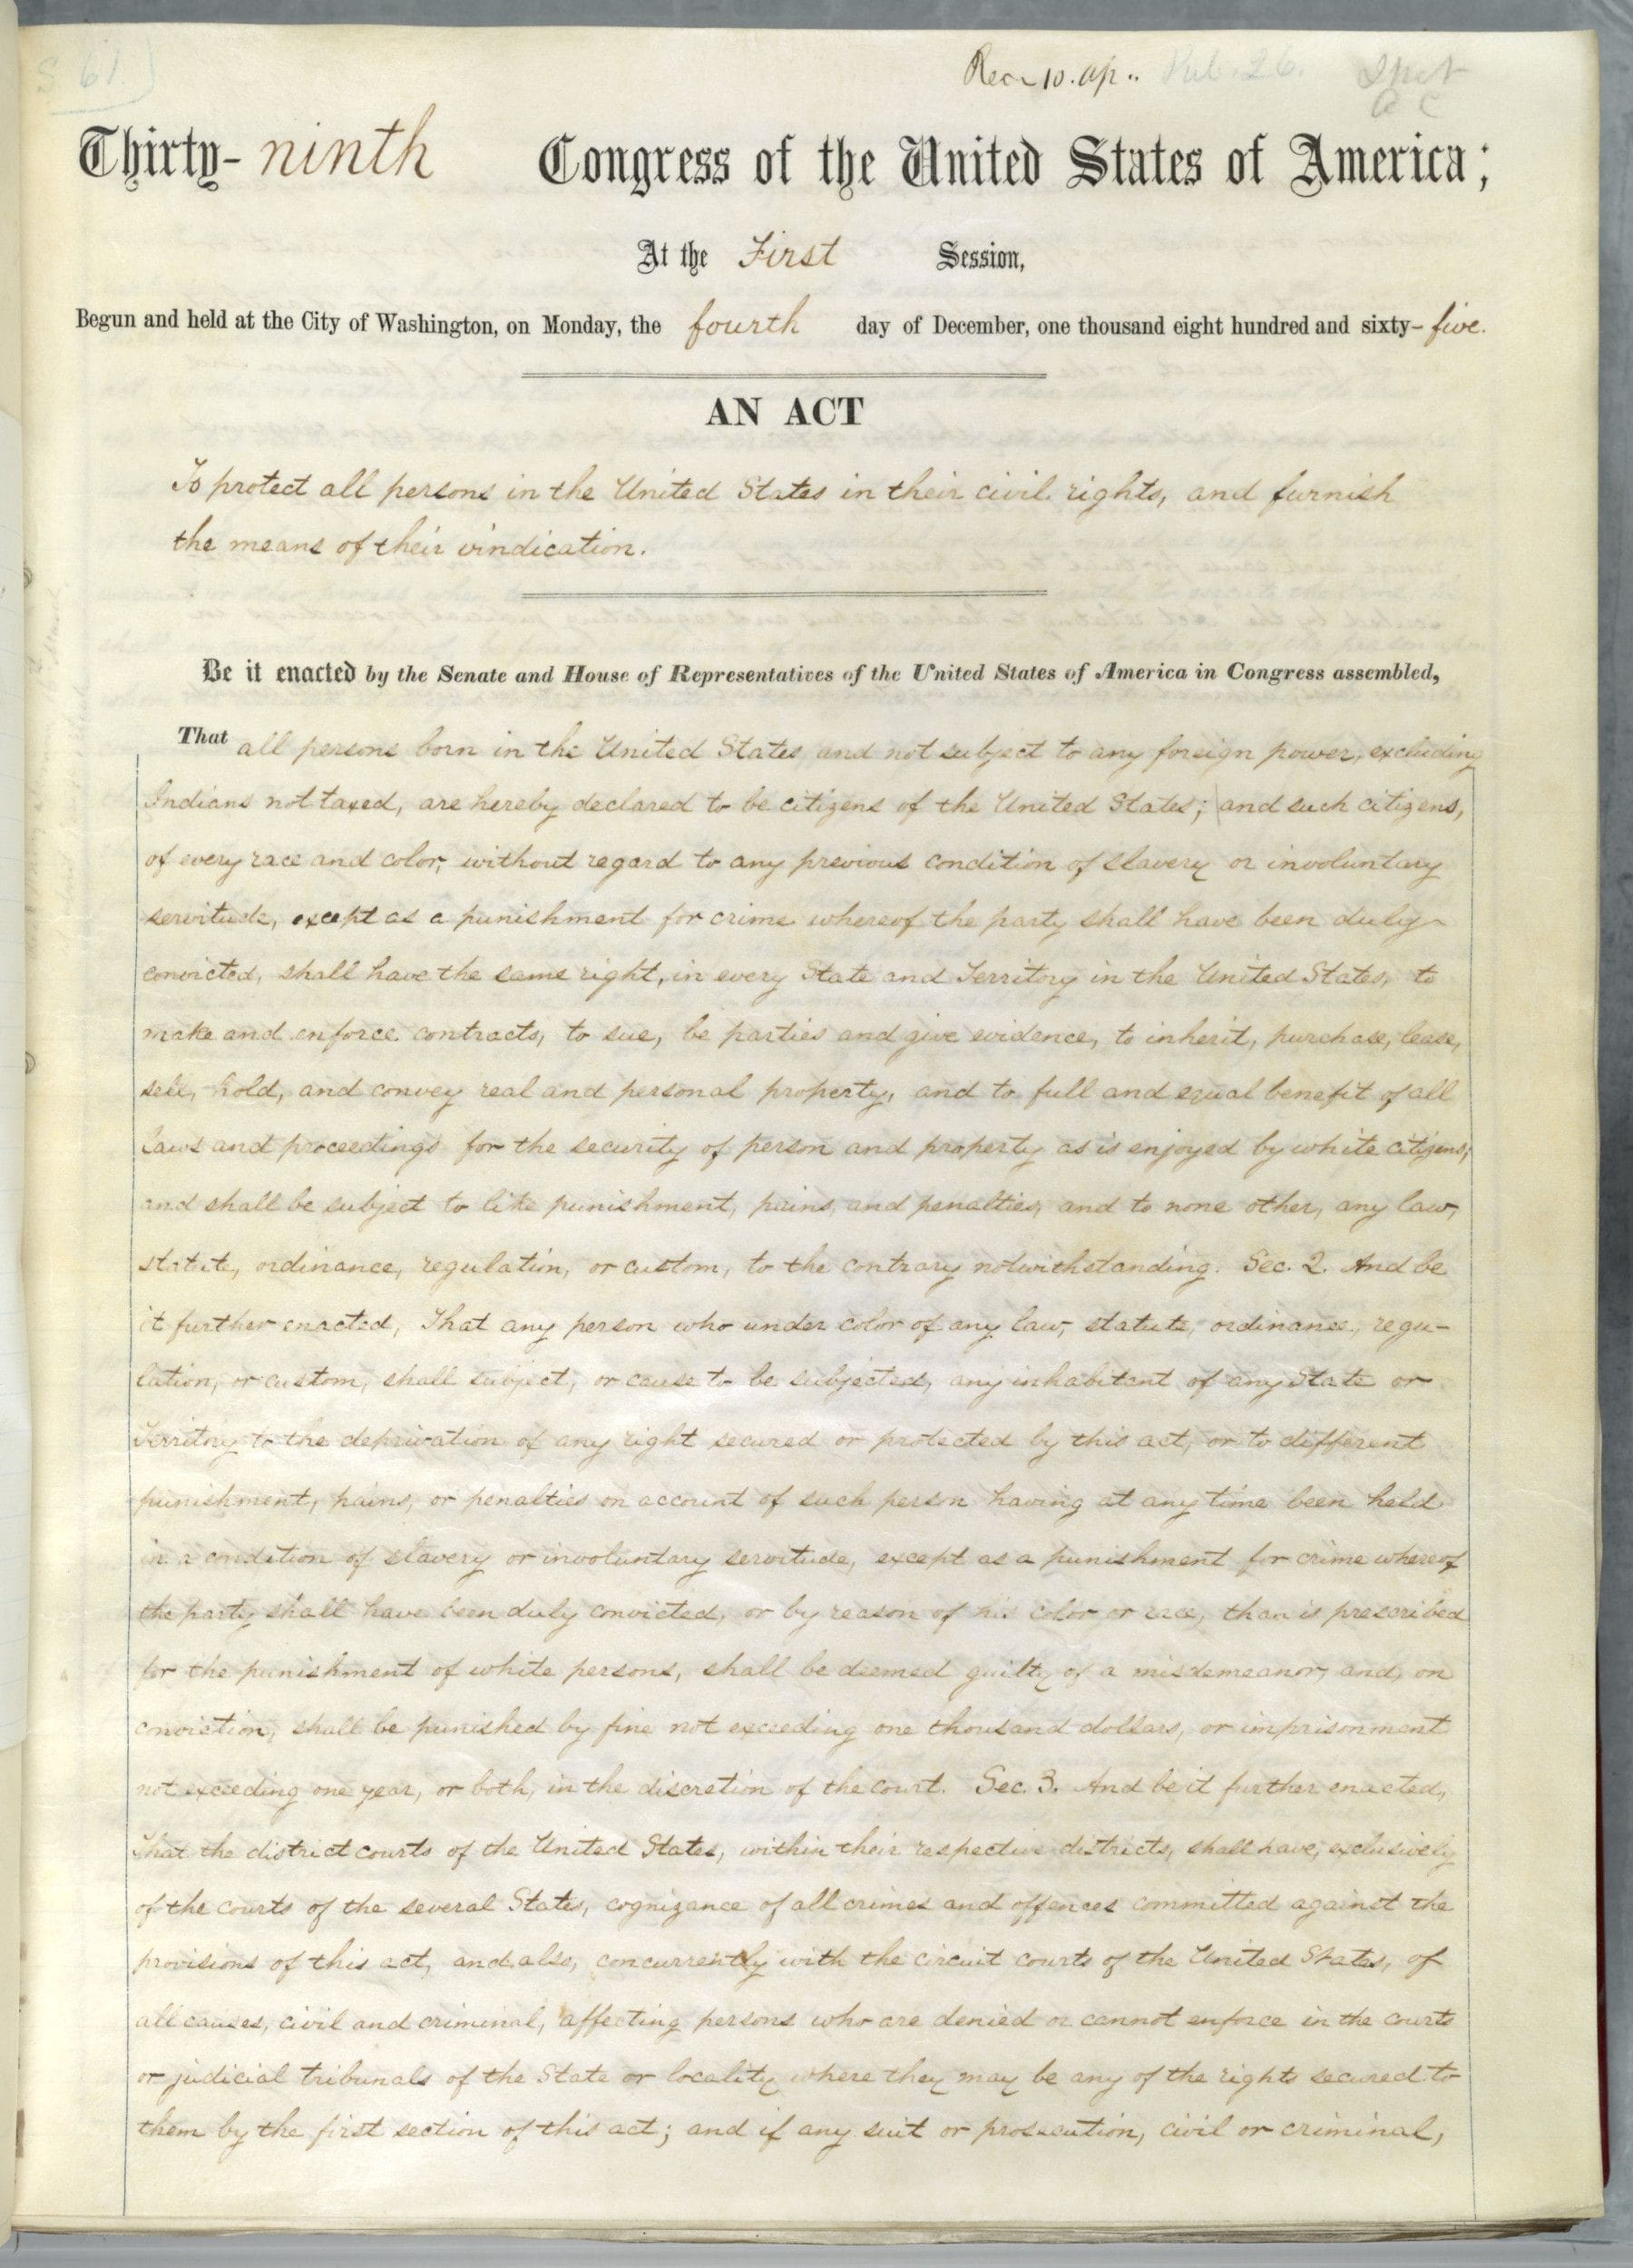 S. 61.
Rec 10. Ap.. Pub. 26.
Thirty-ninth Congress of the United States of America;
At the First Session,
Begun and held at the City of Washington, on Monday, the fourth day of December, one thousand eight hundred and sixty-five.
AN ACT
To protect all persons in the United States in their civil rights, and furnish
the means of their vindication.
Be it enacted by the Senate and House of Representatives of the United States of America in Congress assembled,
That all persons born in the United States and not subject to any foreign power, excluding
Indians not taxed, are hereby declared to be citizens of the United States; and such citizens,
of every race and color, without regard to any previous condition of slavery or involuntary
servitude, except as a punishment for crime whereof the party shall have been duly
convicted, shall have the same right, in every State and Territory in the United States, to
make and enforce contracts, to sue, be parties and give evidence, to inherit, purchase, lease,
sell, hold, and convey real and personal property, and to full and equal benefit of all
laws and proceedings for the security of person and property as is enjoyed by white citizens,
and shall be subject to like punishment, pains, and penalties, and to none other, any law,
statute, ordinance, regulation, or custom, to the contrary notwithstanding. Sec. 2. And be
it further enacted, That any person who under color of any law, statute, ordinance, regu-
lation, or custom, shall subject, or cause to be subjected, any inhabitant of any State or
Territory to the deprivation of any right secured or protected by this act, or to different
punishment, pains, or penalties on account of such person having at any time been held
in a condition of slavery or involuntary servitude, except as a punishment for crime whereof
the party shall have been duly convicted, or by reason of his color or race, than is prescribed
for the punishment of white persons, shall be deemed guilty of a misdemeanor, and, on
conviction, shall be punished by fine not exceeding one thousand dollars, or imprisonment
not exceeding one year, or both, in the discretion of the court. Sec. 3. And be it further enacted,
That the district courts of the United States, within their respective districts, shall have, exclusively
of the courts of the several States, cognizance of all crimes and offences committed against the
provisions of this act, and also, concurrently with the circuit courts of the United States, of
all causes, civil and criminal, affecting persons who are denied or cannot enforce in the courts
or judicial tribunals of the State or locality where they may be any of the rights secured to
them by the first section of this act; and if any suit or prosecution, civil or criminal,